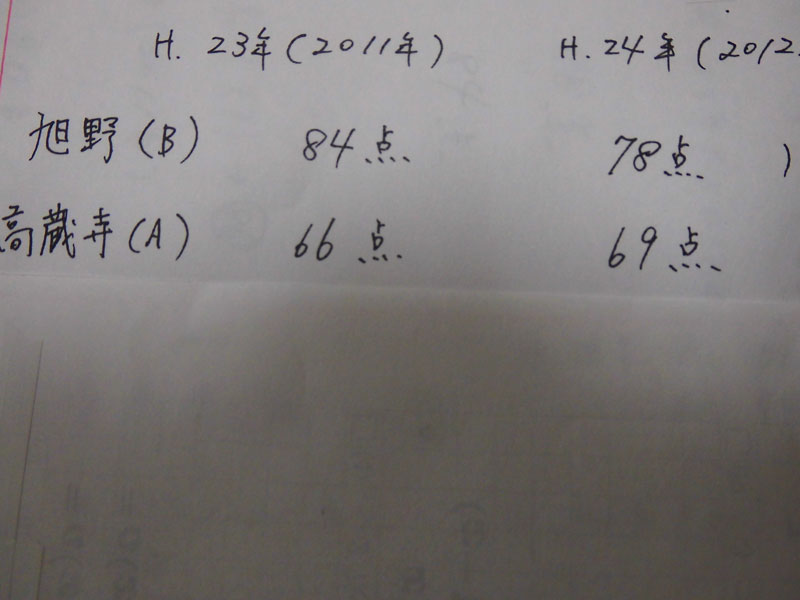 H. 23年(2011年) H. 24年(2012
旭野(B) 84点 78点 )
高蔵寺(A) 66点 69点